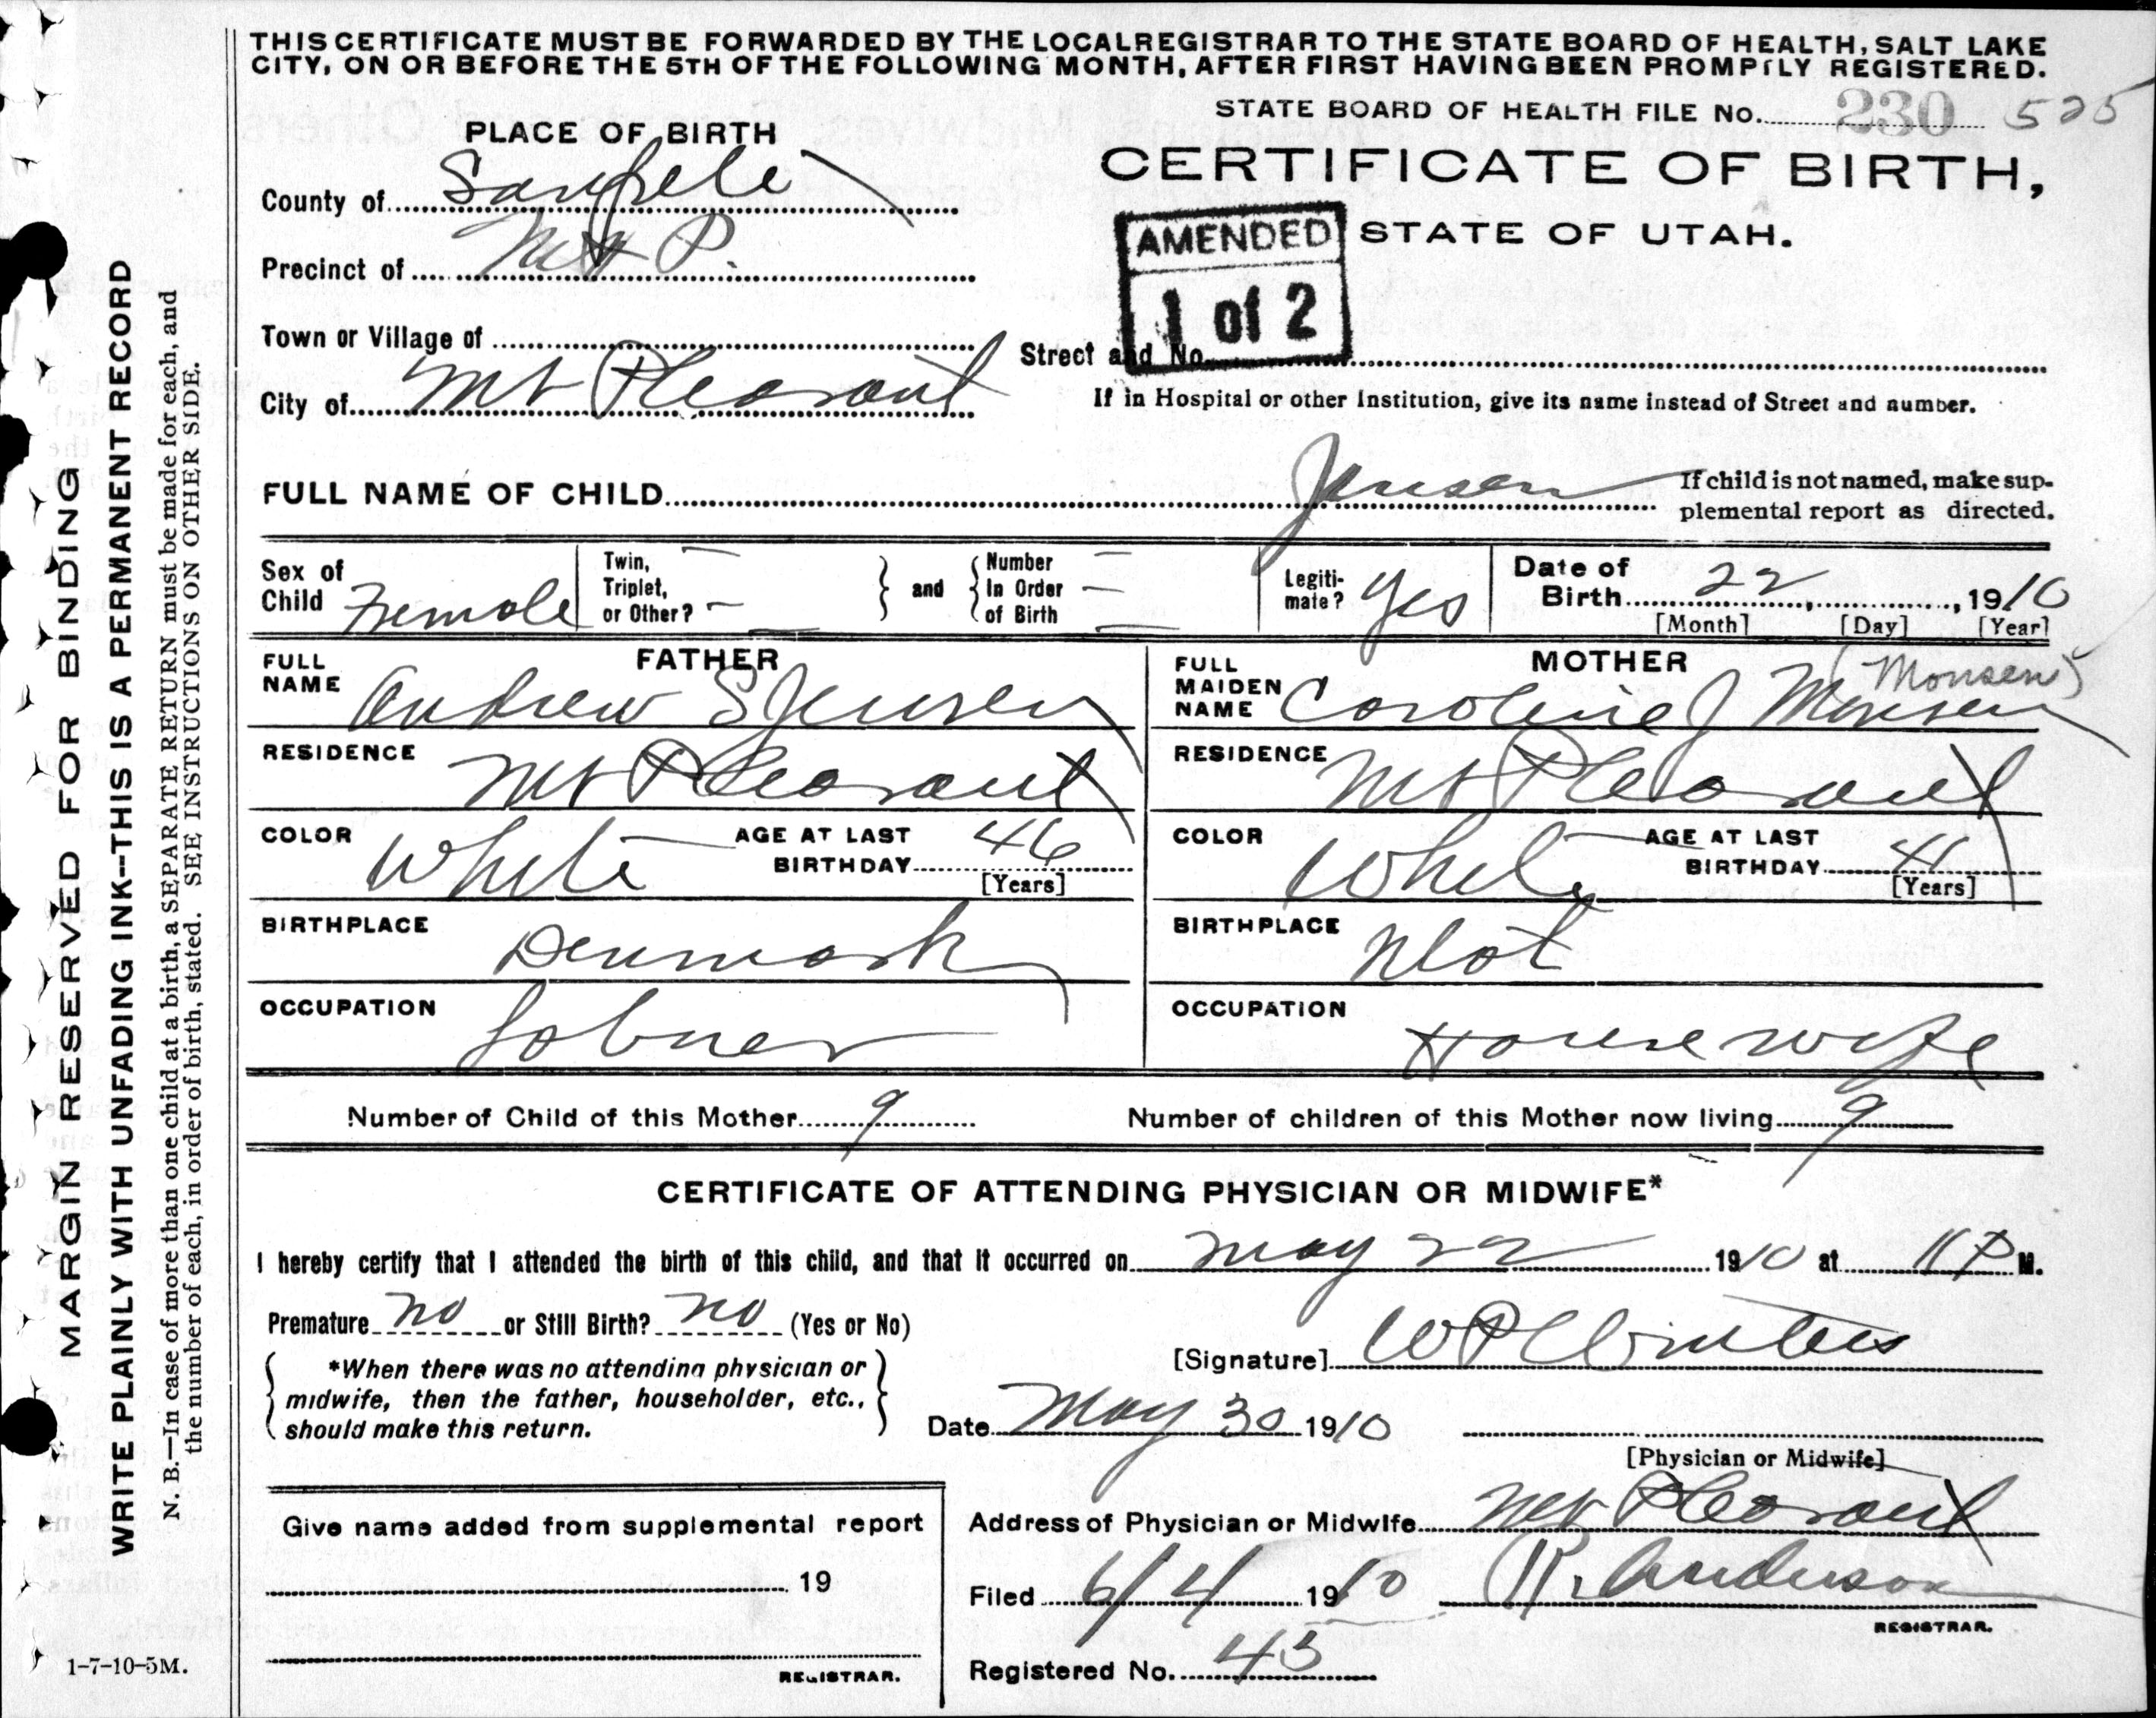 THIS CERTIFICATE MUST BE FORWARDED BY THE LOCAL REGISTRAR TO THE STATE BOARD OF HEALTH, SALT LAKE
CITY, ON OR BEFORE THE 5TH OF THE FOLLOWING MONTH, AFTER FIRST HAVING BEEN PROMPTLY REGISTERED.
STATE BOARD OF HEALTH FILE No. 230 525
PLACE OF BIRTH
CERTIFICATE OF BIRTH,
County of Sanpete
AMENDED
STATE OF UTAH.
Precinct of Mt P.
1 of 2
Town or Village of
Street and No.
City of Mt Pleasant
If in Hospital or other Institution, give its name instead of Street and number.
FULL NAME OF CHILD Jensen
If child is not named, make sup-
plemental report as directed.
Sex of Child Female
Twin, Triplet, or Other?
and
Number In Order of Birth
Legiti-mate? Yes
Date of Birth 22, 1910
[Month] [Day] [Year]
FATHER
FULL NAME Andrew S Jensen
RESIDENCE Mt Pleasant
COLOR White
AGE AT LAST BIRTHDAY 46
[Years]
BIRTHPLACE Denmark
OCCUPATION
MOTHER
(Monsen)
FULL MAIDEN NAME Caroline J Monsen
RESIDENCE Mt Pleasant
COLOR White
AGE AT LAST BIRTHDAY 41
[Years]
BIRTHPLACE
OCCUPATION Housewife
Number of Child of this Mother 9
Number of children of this Mother now living 9
CERTIFICATE OF ATTENDING PHYSICIAN OR MIDWIFE*
I hereby certify that I attended the birth of this child, and that it occurred on May 22 1910 at 11 P M.
Premature no or Still Birth? no (Yes or No)
*When there was no attending physician or
midwife, then the father, householder, etc.,
should make this return.
[Signature] W P Winters
Date May 30 1910
[Physician or Midwife]
Give name added from supplemental report
19
REGISTRAR.
Address of Physician or Midwife Mt Pleasant
Filed 6/4 1910 R. Anderson
REGISTRAR.
Registered No. 45
MARGIN RESERVED FOR BINDING
WRITE PLAINLY WITH UNFADING INK--THIS IS A PERMANENT RECORD
N. B.—In case of more than one child at a birth, a SEPARATE RETURN must be made for each, and
the number of each, in order of birth, stated. SEE INSTRUCTIONS ON OTHER SIDE.
1-7-10-5M.